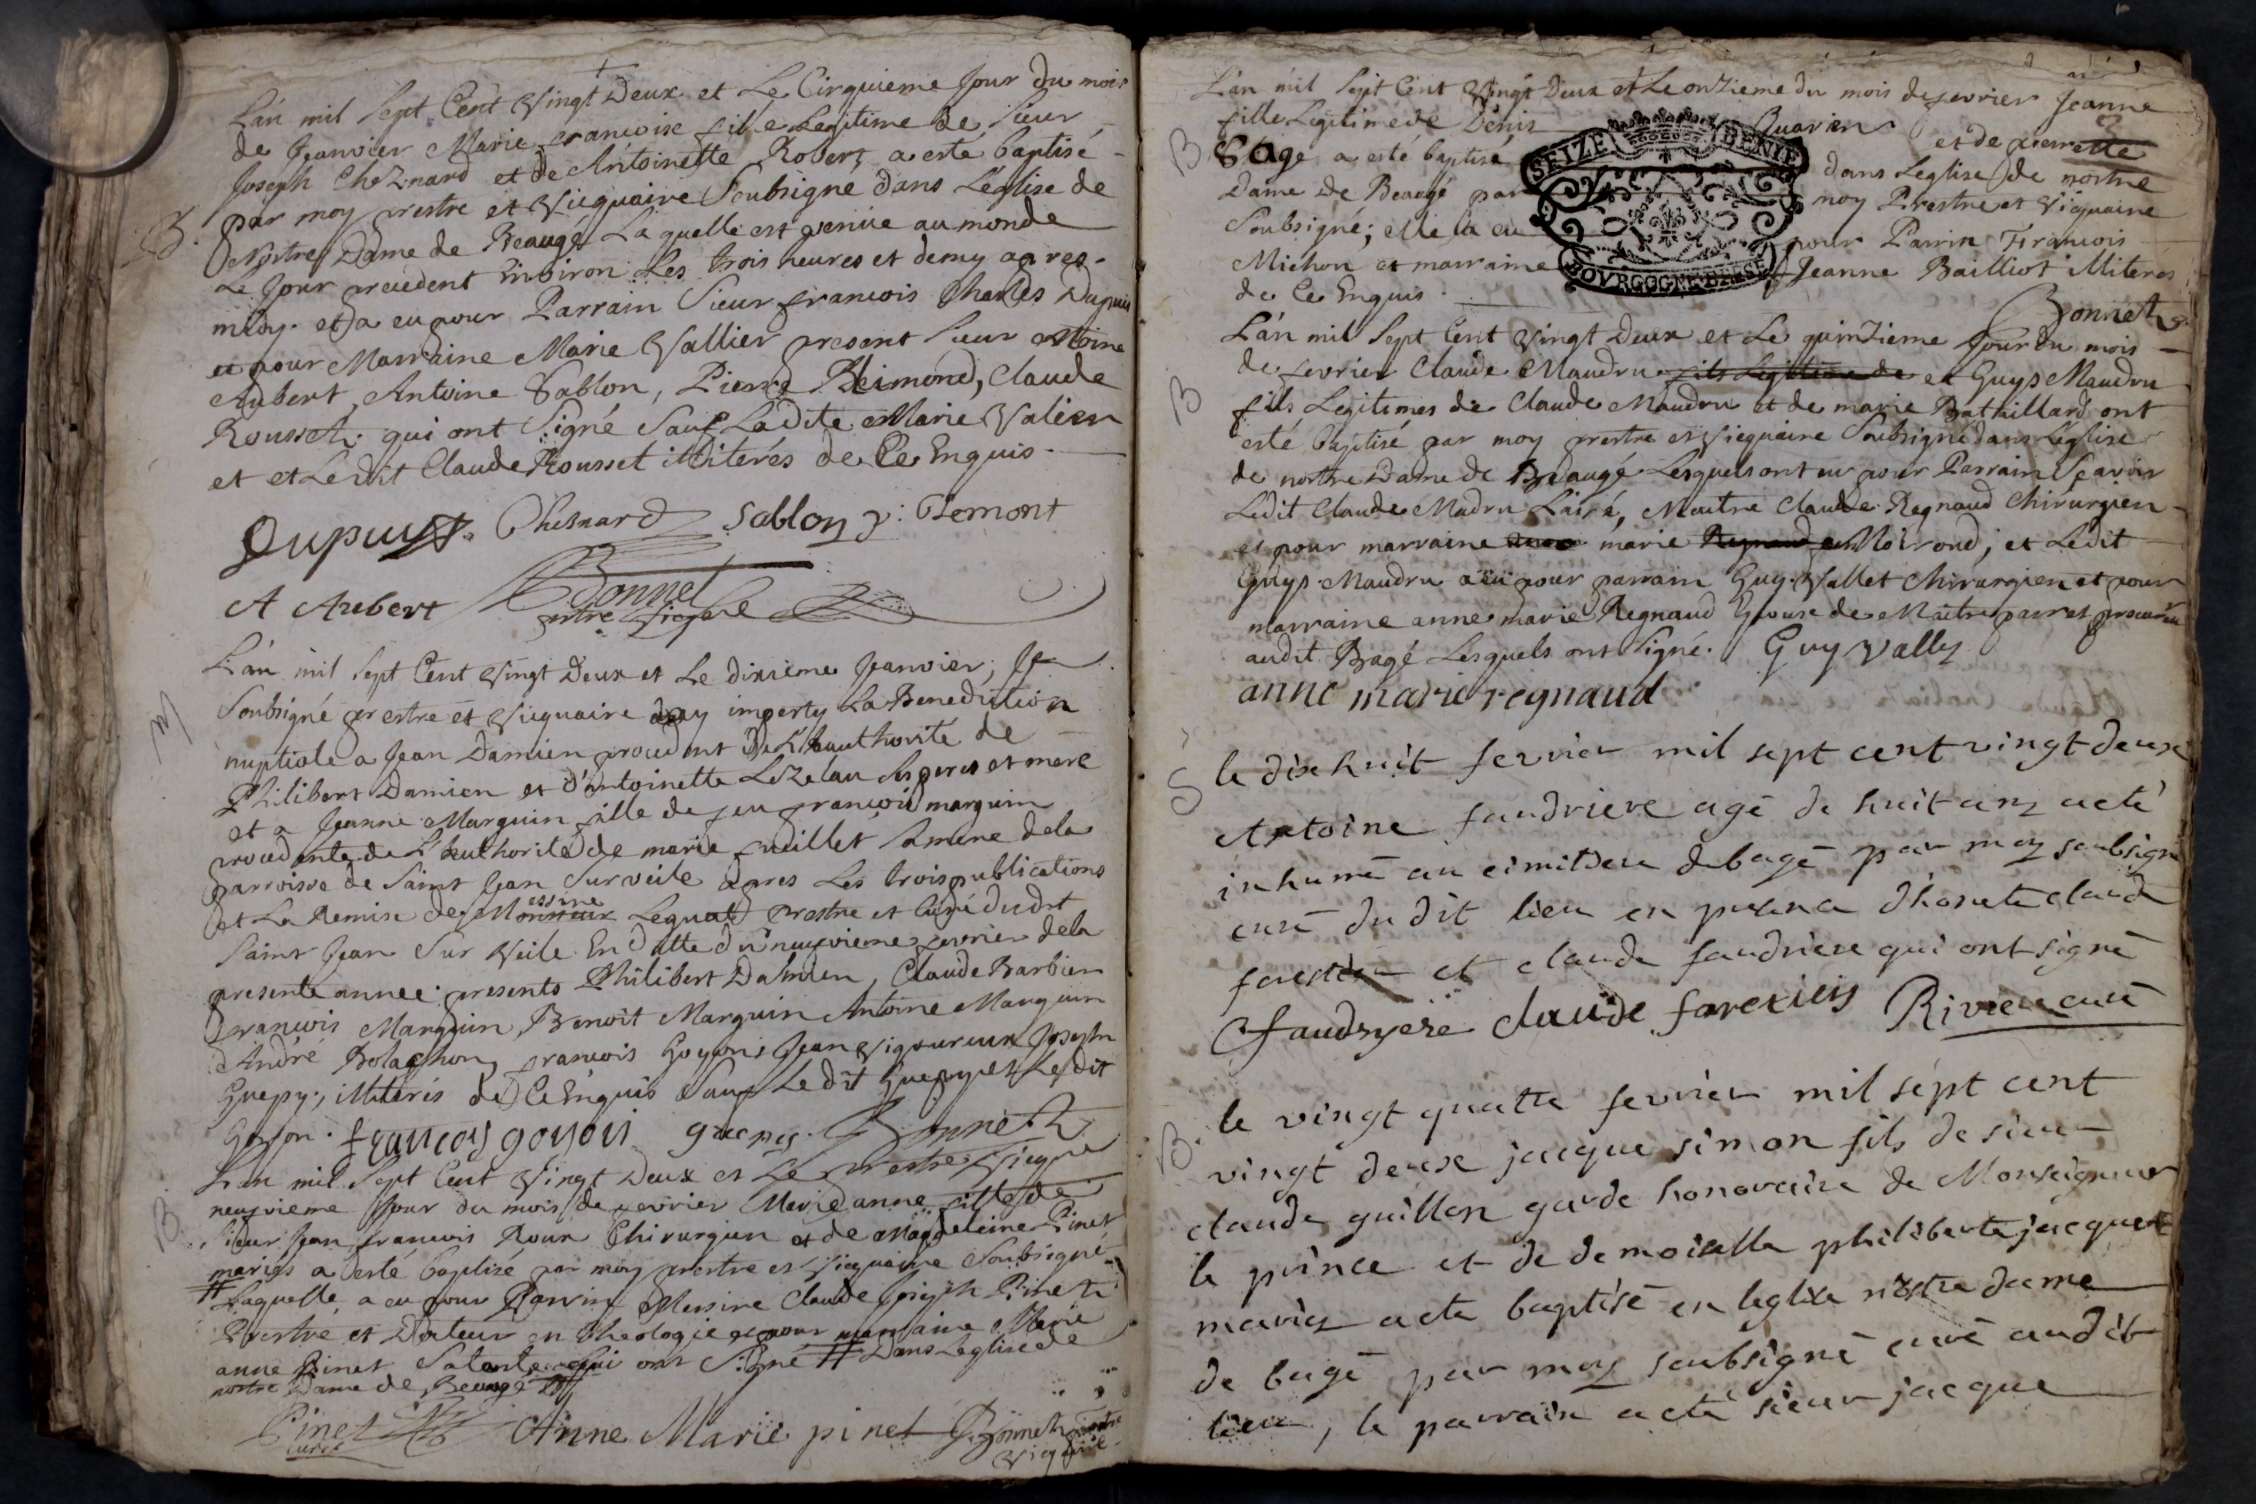 L'an mil Sept Cent Vingt Deux et Le Cirquieme Jour du mois
de Jeanvier Marie francoise fille Legitime de Sieur
Joseph Cheznard et de Antoinette Robert a esté baptisé
par moy prestre et Vicquaire Soubsigné dans L'eglise de
B.
Nostre Dame de Beaugé La quelle est venüe au monde
Le Jour precedent Environ Les trois heures et demy apres
midy. et a eu pour Parrain Sieur francois Charles Dupuis
et pour Marraine Marie Vallier present Sieur
Aubert, Antoine Sablon, Pierre Bleimond, Claude
Rousset. qui ont Signé Sauf Ladite Marie Valier
et et Ledit Claude Rousset illiterés de Ce Enquis.
Dupuis. Chesnard Sablon p: Bemont
A Aubert Bonnet
L'an mil Sept Cent Vingt Deux et Le dixieme Jeanvier, Je
Soubsigné prestre et Vicquaire ay imperty La Benediction
nuptiale a Jean Damien procedent de L'hauthorité de
Philibert Damien et d'Antoinette Lizelau Ses peres et mere
et a Jeanne Marguin fille de feu francois marguin
procedente de L'authorité de marie fueillet Sa mere de la
parroisse de Saint Jean Surveile apres Les trois publications
et La Remise de Messire Leguat prestre et Curé dudit
Saint Jean Sur Veile En datte du neufvieme fevrier de la
presente annee. presents Philibert Damien, Claude Barbier
francois Marguin, Benoit Marguin Antoine Marguin
d'André Bolachon, francois Goyon, Jean Vigoureux Joseph
Guepy, illiterés de Ce Enquis Sauf Ledit Guepy et Ledit
Goyon. francoy goyon guepey. Bonnet
L'an mil Sept Cent Vingt Deux et Le prestre Vicque
B.
neufvieme Jour du mois de fevrier Marie anne fille de
Sieur Jean francois Roux Chirurgien et de Magdeleine Pinet
mariés a esté baptisé par moy prestre et Vicquaire Soubsigné
Laquelle a eu pour Parrin Messire Claude Joseph Pinet
Prestre et Docteur en Theologie et pour marraine Marie
anne Pinet Sa tante qui ont Signé # Dans Leglise de
nostre Dame de Beaugé #
Pinet curé Anne Marie pinet Bonnet prestre
Vicquaire
L'an mil Sept Cent Vingt Deux et Le onzieme du mois de fevrier Jeanne
fille Legitime de Denis Quarier et de pierrette
B
Sage a esté baptisé dans Leglise de nostre
Dame de Beaugé par moy Prestre et Viquaire
Soubsigné; elle a eu pour Parrin Francois
Michon et marraine Jeanne Bailliot illiteres
de Ce Enquis.
SEIZE DENIE
BOVRGOGNE BRESSE
Bonnet
L'an mil Sept Cent Vingt Deux et Le quinzieme Jour du mois
B
de fevrier Claude Maudru fils Legitime de et Guys Maudru
fils Legitimes de Claude Maudru et de marie Bathillard ont
esté baptisé par moy prestre et Vicquaire Soubsigné dans Leglise
de nostre Dame de Beaugé Lesquels ont eu pour Parrain Scavoir
Ledit Claude Madru Lainé, Maitre Claude Regnaud Chirurgien
et pour marraine marie Regnaud Moirond; et Ledit
Guys Maudru a eu pour parrain Guy Vallet Chirurgien et pour
marraine anne marie Regnaud Epouse de Maitre parret procureur
audit Bagé Lesquels ont Signé. Guy Vally
anne marie regnaud
S
le dixhuit fevrier mil sept cent vingt deux
Antoine faudriere agé de huit ans a eté
inhumé au cimitiere de bagé par moy soubsigné
curé du dit lieu en presence d'honete claude
forestier et claude faudriere qui ont signé
C faudryere claude foretiers Riviere curé
B.
le vingt quatte fevrier mil sept cent
vingt deux jacque simon fils de sieur
claude guillon garde honoraire de Monseigneur
le prince et de demoiselle philiberte jacquet
mariez a ete baptisé en leglise nostre dame
de bagé par moy soubsigné curé audit
lieu, le parrain a eté sieur jacque